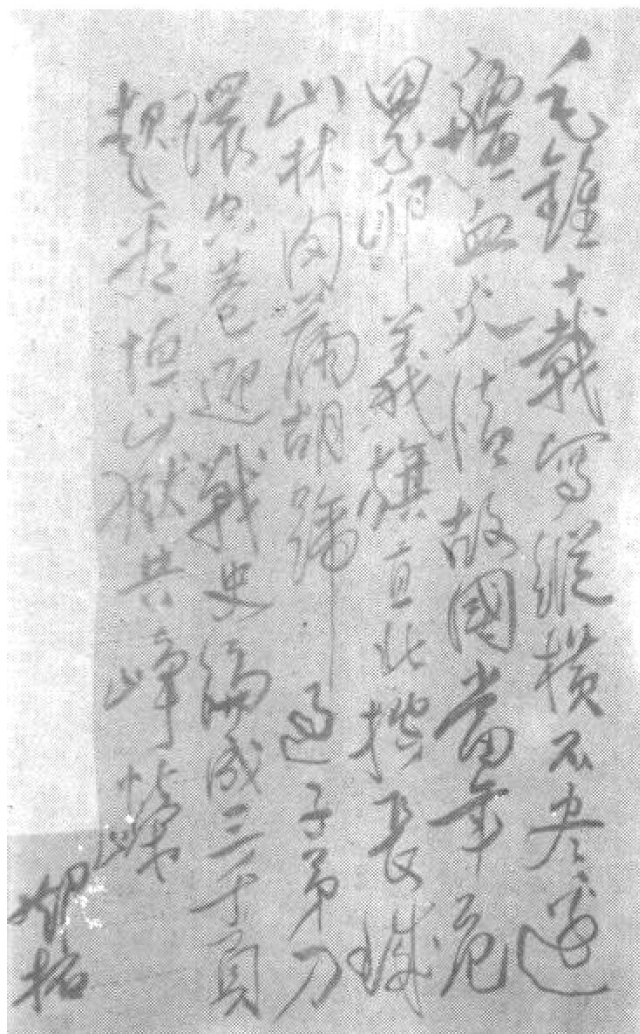 毛錐十載寫縱橫不盡邊
疆血火情故國當年危
累卵義旗直北控長城
山林肉滿胡蹄過子弟刀
環空巷迎戰史編成三千頁
看恒嶽共崢嶸
鄧拓